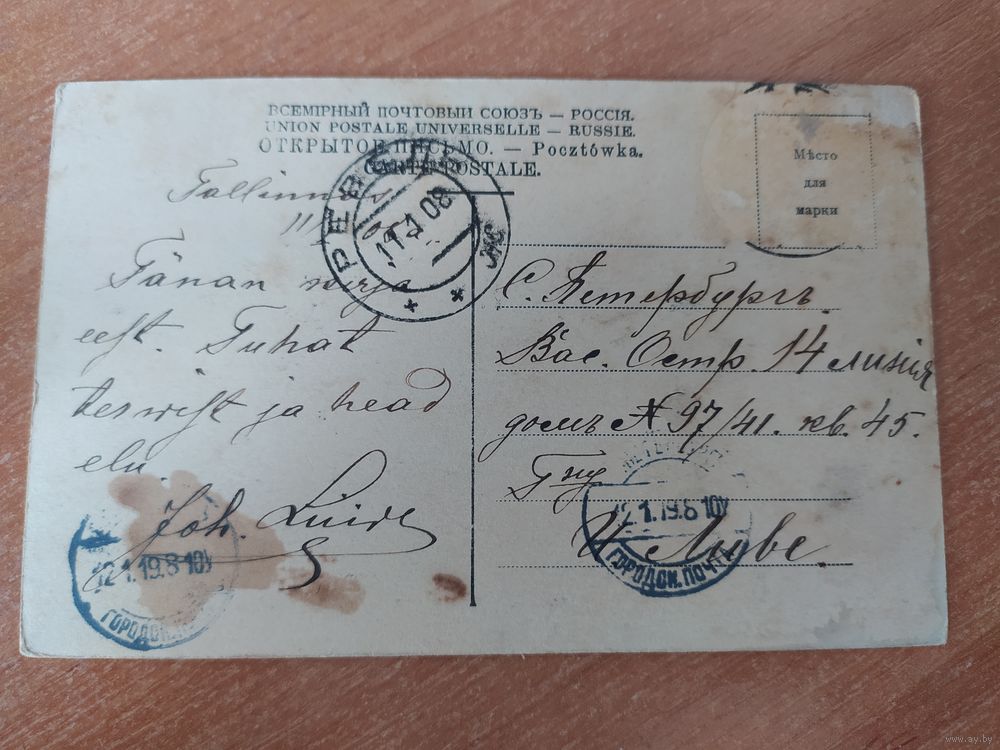 ВСЕМІРНЫЙ ПОЧТОВЫЙ СОЮЗЪ — РОССІЯ.
UNION POSTALE UNIVERSELLE — RUSSIE.
ОТКРЫТОЕ ПИСЬМО. — Pocztówka.
CARTE POSTALE.
Мѣсто
для
марки
Tallinnas
11
РЕВЕЛЬ
11 1 08
Tänan
eest. Tuhat
terwist ja head
elu
Joh.
С. Петербургъ.
Вас. Остр. 14 линія
домъ № 97/41. кв. 45.
Гну
И Луве
12.1.19.8 10
ГОРОДСК. ПОЧТА
12.1.19.8 10
www.ay.by